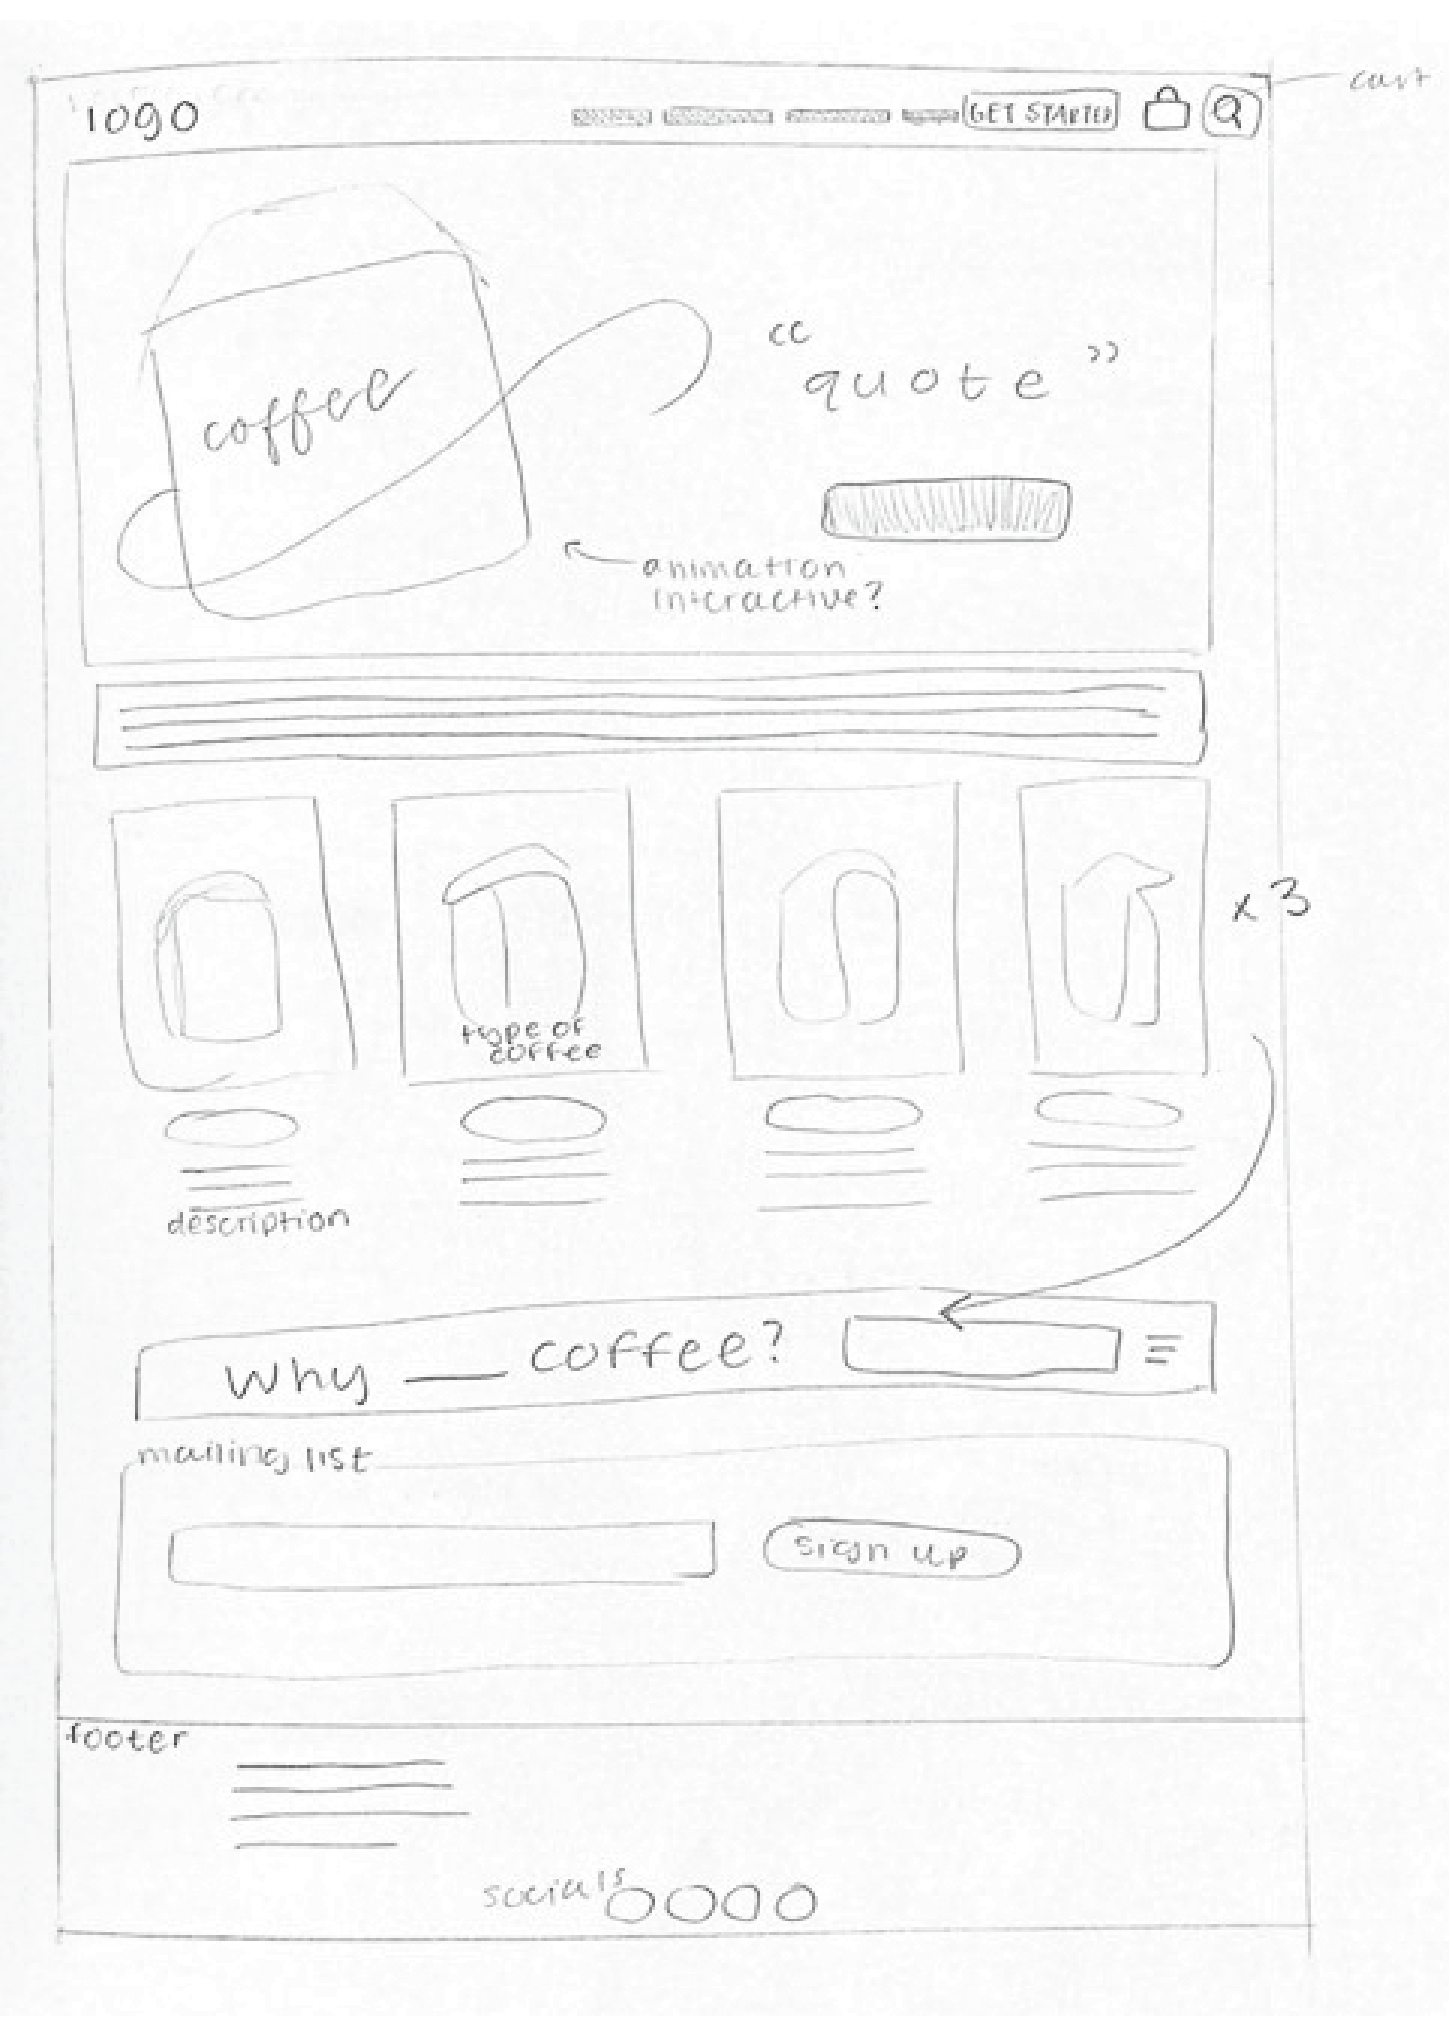 logo
GET STARTED
cart
coffee
“ quote ”
animation
interactive?
x 3
type of
coffee
description
Why ___ coffee?
mailing list
sign up
footer
socials